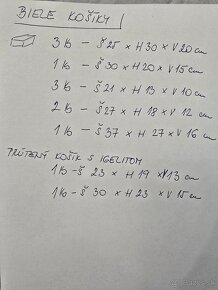 BIELE KOŠÍKY
3 ks - Š 25 x H 30 x V 20 cm
1 ks - Š 30 x H 20 x V 15 cm
3 ks - Š 21 x H 15 x V 10 cm
2 ks - Š 27 x H 18 x V 12 cm
1 ks - Š 37 x H 27 x V 16 cm
PRÚTENÝ KOŠÍK S IGELITOM
1 ks - Š 23 x H 19 x V 13 cm
1 ks - Š 30 x H 23 x V 15 cm